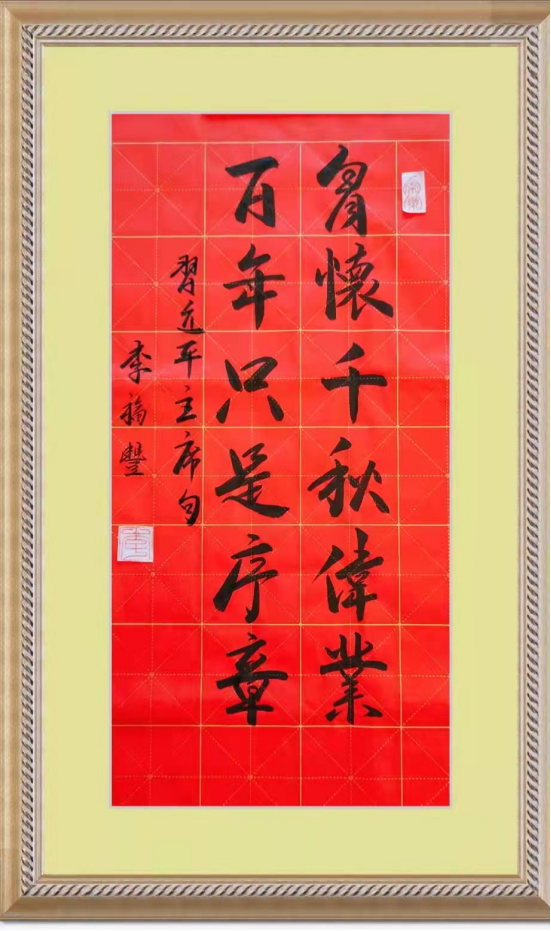 胷懷千秋偉業
百年只是序章
習近平主席句
李福豐